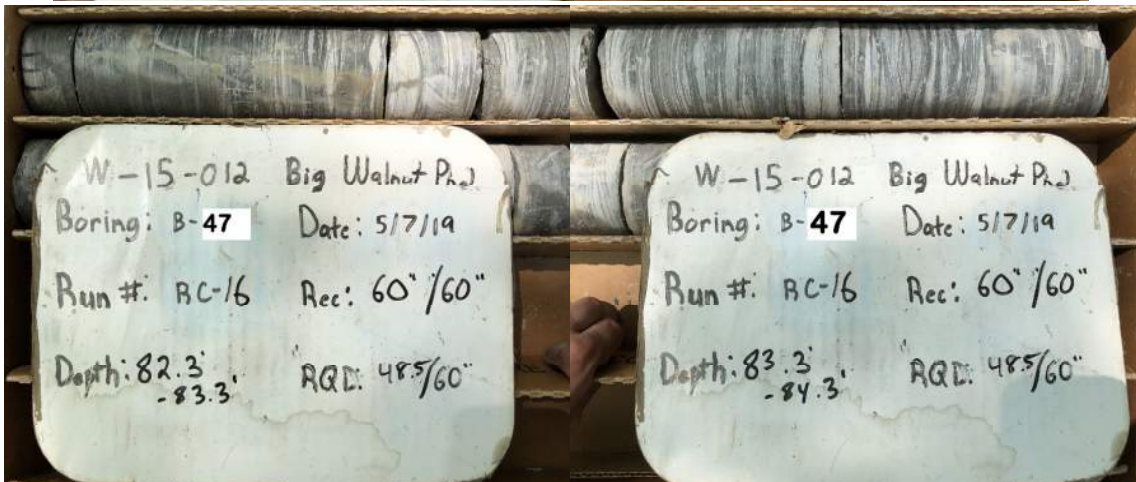 W-15-012 Big Walnut Ph2
Boring: B-47 Date: 5/7/19
Run #: RC-16 Rec: 60"/60"
Depth: 82.3' RQD: 48.5/60"
-83.3'
W-15-012 Big Walnut Ph2
Boring: B-47 Date: 5/7/19
Run #: RC-16 Rec: 60"/60"
Depth: 83.3' RQD: 48.5/60"
-84.3'